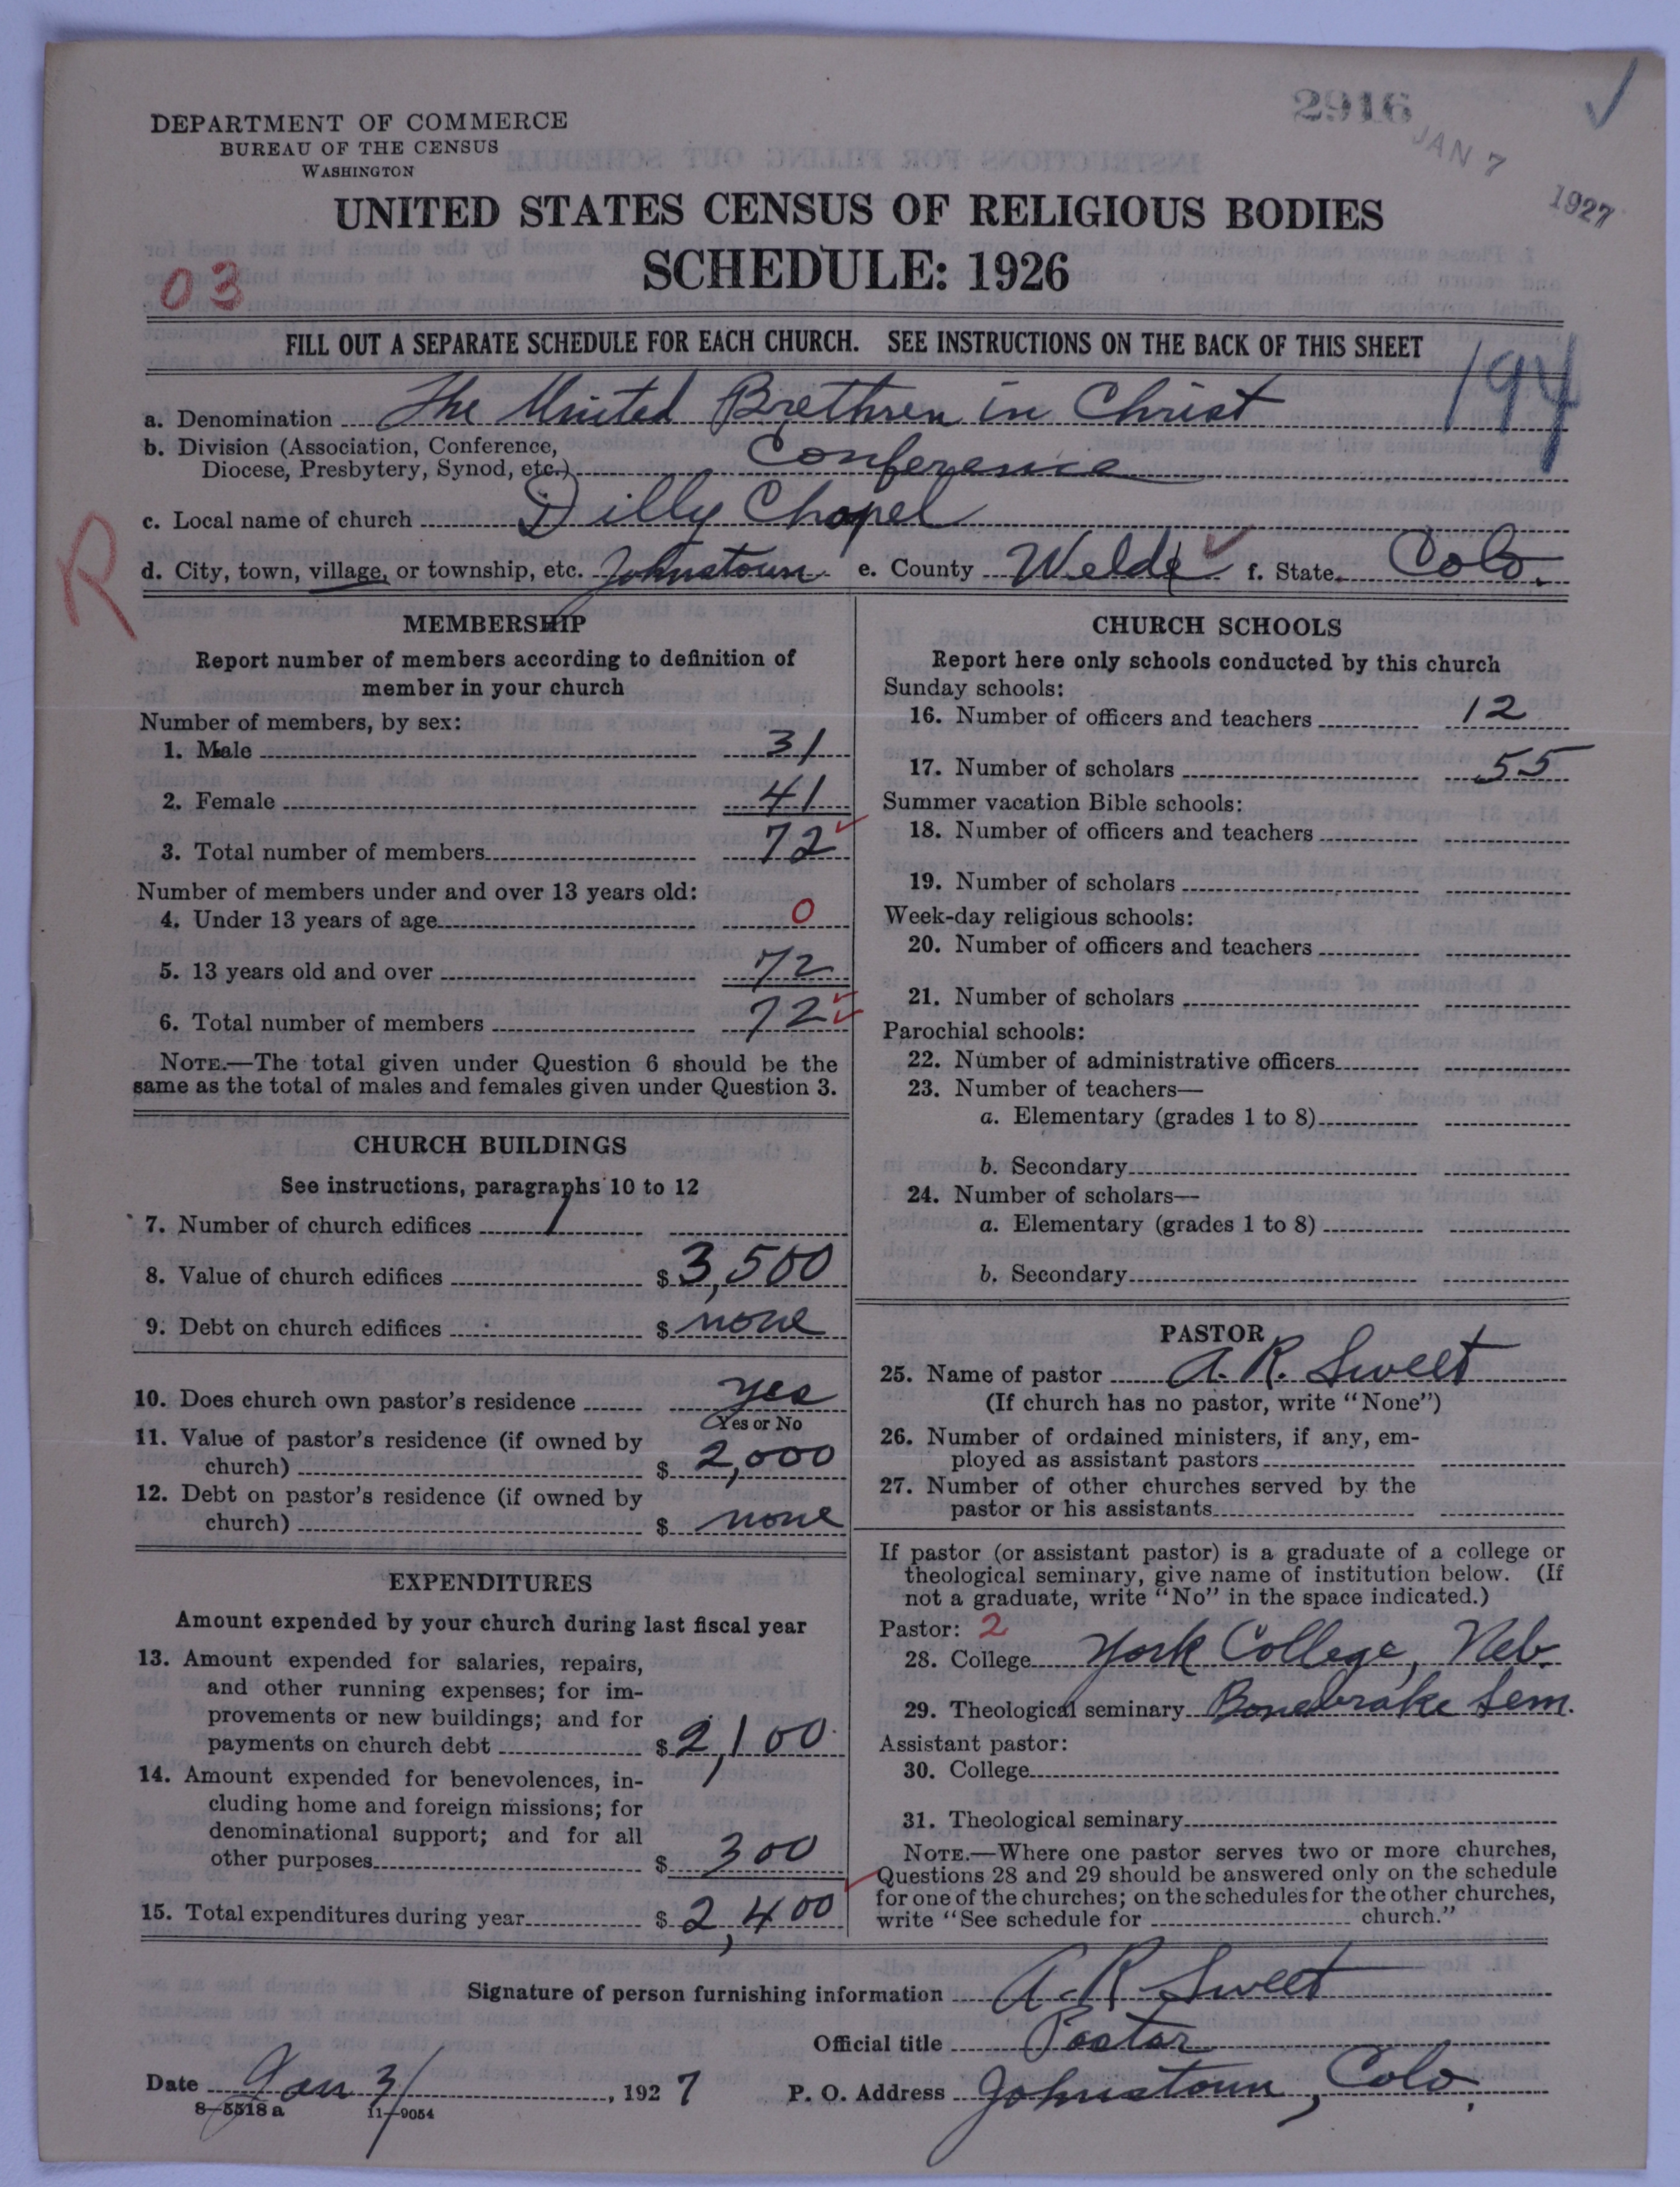 2916
JAN 7 1927
DEPARTMENT OF COMMERCE
BUREAU OF THE CENSUS
WASHINGTON
UNITED STATES CENSUS OF RELIGIOUS BODIES
SCHEDULE: 1926
03
FILL OUT A SEPARATE SCHEDULE FOR EACH CHURCH. SEE INSTRUCTIONS ON THE BACK OF THIS SHEET
194
a. Denomination The United Brethren in Christ
b. Division (Association, Conference,
Diocese, Presbytery, Synod, etc.) Conference
c. Local name of church Dilly Chapel
R
d. City, town, village, or township, etc. Johnstown e. County Welde f. State Colo.
MEMBERSHIP
Report number of members according to definition of
member in your church
Number of members, by sex:
1. Male 31
2. Female 41
3. Total number of members 72
Number of members under and over 13 years old:
4. Under 13 years of age 0
5. 13 years old and over 72
6. Total number of members 72
NOTE.—The total given under Question 6 should be the
same as the total of males and females given under Question 3.
CHURCH BUILDINGS
See instructions, paragraphs 10 to 12
7. Number of church edifices 1
8. Value of church edifices $ 3,500
9. Debt on church edifices $ none
10. Does church own pastor's residence yes
Yes or No
11. Value of pastor's residence (if owned by
church) $ 2,000
12. Debt on pastor's residence (if owned by
church) $ none
EXPENDITURES
Amount expended by your church during last fiscal year
13. Amount expended for salaries, repairs,
and other running expenses; for im-
provements or new buildings; and for
payments on church debt $ 2,100
14. Amount expended for benevolences, in-
cluding home and foreign missions; for
denominational support; and for all
other purposes $ 300
15. Total expenditures during year $ 2,400
CHURCH SCHOOLS
Report here only schools conducted by this church
Sunday schools:
16. Number of officers and teachers 12
17. Number of scholars 55
Summer vacation Bible schools:
18. Number of officers and teachers
19. Number of scholars
Week-day religious schools:
20. Number of officers and teachers
21. Number of scholars
Parochial schools:
22. Number of administrative officers
23. Number of teachers—
a. Elementary (grades 1 to 8)
b. Secondary
24. Number of scholars—
a. Elementary (grades 1 to 8)
b. Secondary
PASTOR
25. Name of pastor A. R. Sweet
(If church has no pastor, write "None")
26. Number of ordained ministers, if any, em-
ployed as assistant pastors
27. Number of other churches served by the
pastor or his assistants
If pastor (or assistant pastor) is a graduate of a college or
theological seminary, give name of institution below. (If
not a graduate, write "No" in the space indicated.)
Pastor: 2
28. College York College, Neb.
29. Theological seminary Bonebrake Sem.
Assistant pastor:
30. College
31. Theological seminary
NOTE.—Where one pastor serves two or more churches,
Questions 28 and 29 should be answered only on the schedule
for one of the churches; on the schedules for the other churches,
write "See schedule for church."
Signature of person furnishing information A. R. Sweet
Official title Pastor
Date Jan 3/, 1927 P. O. Address Johnstown, Colo.
8—5518a 11—9054